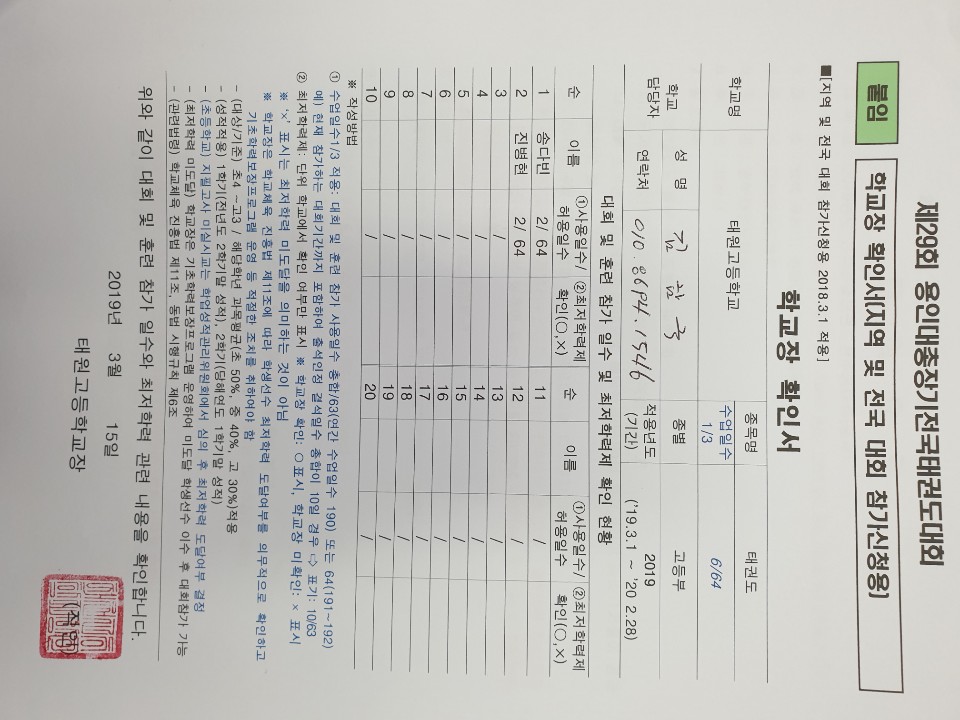 제29회 용인대총장기전국태권도대회
붙임
학교장 확인서(지역 및 전국 대회 참가신청용)
■[지역 및 전국 대회 참가신청용 2018.3.1 적용]
학교장 확인서
학교명 태원고등학교 종목명 태권도
수업일수 1/3 6/64
학교 담당자 성 명 종별 고등부
연락처 010. 8694. 1546 적용년도 (기간) 2019 ('19.3.1 ~ '20 2.28)
대회 및 훈련 참가 일수 및 최저학력제 확인 현황
순 이름 ①사용일수/허용일수 ②최저학력제 확인(○,×) 순 이름 ①사용일수/허용일수 ②최저학력제 확인(○,×)
1 송다빈 2/ 64 11 /
2 진병헌 2/ 64 12 /
3 / 13 /
4 / 14 /
5 / 15 /
6 / 16 /
7 / 17 /
8 / 18 /
9 / 19 /
10 / 20 /
※ 작성방법
① 수업일수1/3 적용: 대회 및 훈련 참가 사용일수 총합/63(연간 수업일수 190) 또는 64(191~192)
예) 현재 참가하는 대회기간까지 포함하여 출석인정 결석일수 총합이 10일 경우 ⇨ 표기: 10/63
② 최저학력제: 단위 학교에서 확인 여부만 표시 ※ 학교장 확인: ○ 표시, 학교장 미확인: × 표시
※ '×' 표시는 최저학력 미도달을 의미하는 것이 아님
※ 학교장은 학교체육 진흥법 제11조에 따라 학생선수 최저학력 도달여부를 의무적으로 확인하고
기초학력보장프로그램 운영 등 적절한 조치를 취하여야 함
- (대상/기준) 초4 ~고3 / 해당학년 과목평균(초 50%, 중 40%, 고 30%)적용
- (성적적용) 1학기(전년도 2학기말 성적), 2학기(당해연도 1학기말 성적)
- (초등학교) 지필고사 미실시교는 학업성적관리위원회에서 심의 후 최저학력 도달여부 결정
- (최저학력 미도달) 학교장은 기초학력보장프로그램 운영하여 미도달 학생선수 이수 후 대회참가 가능
- (관련법령) 학교체육 진흥법 제11조, 동법 시행규칙 제6조
위와 같이 대회 및 훈련 참가 일수와 최저학력 관련 내용을 확인합니다.
2019년 3월 15일
태원고등학교장 (직인)